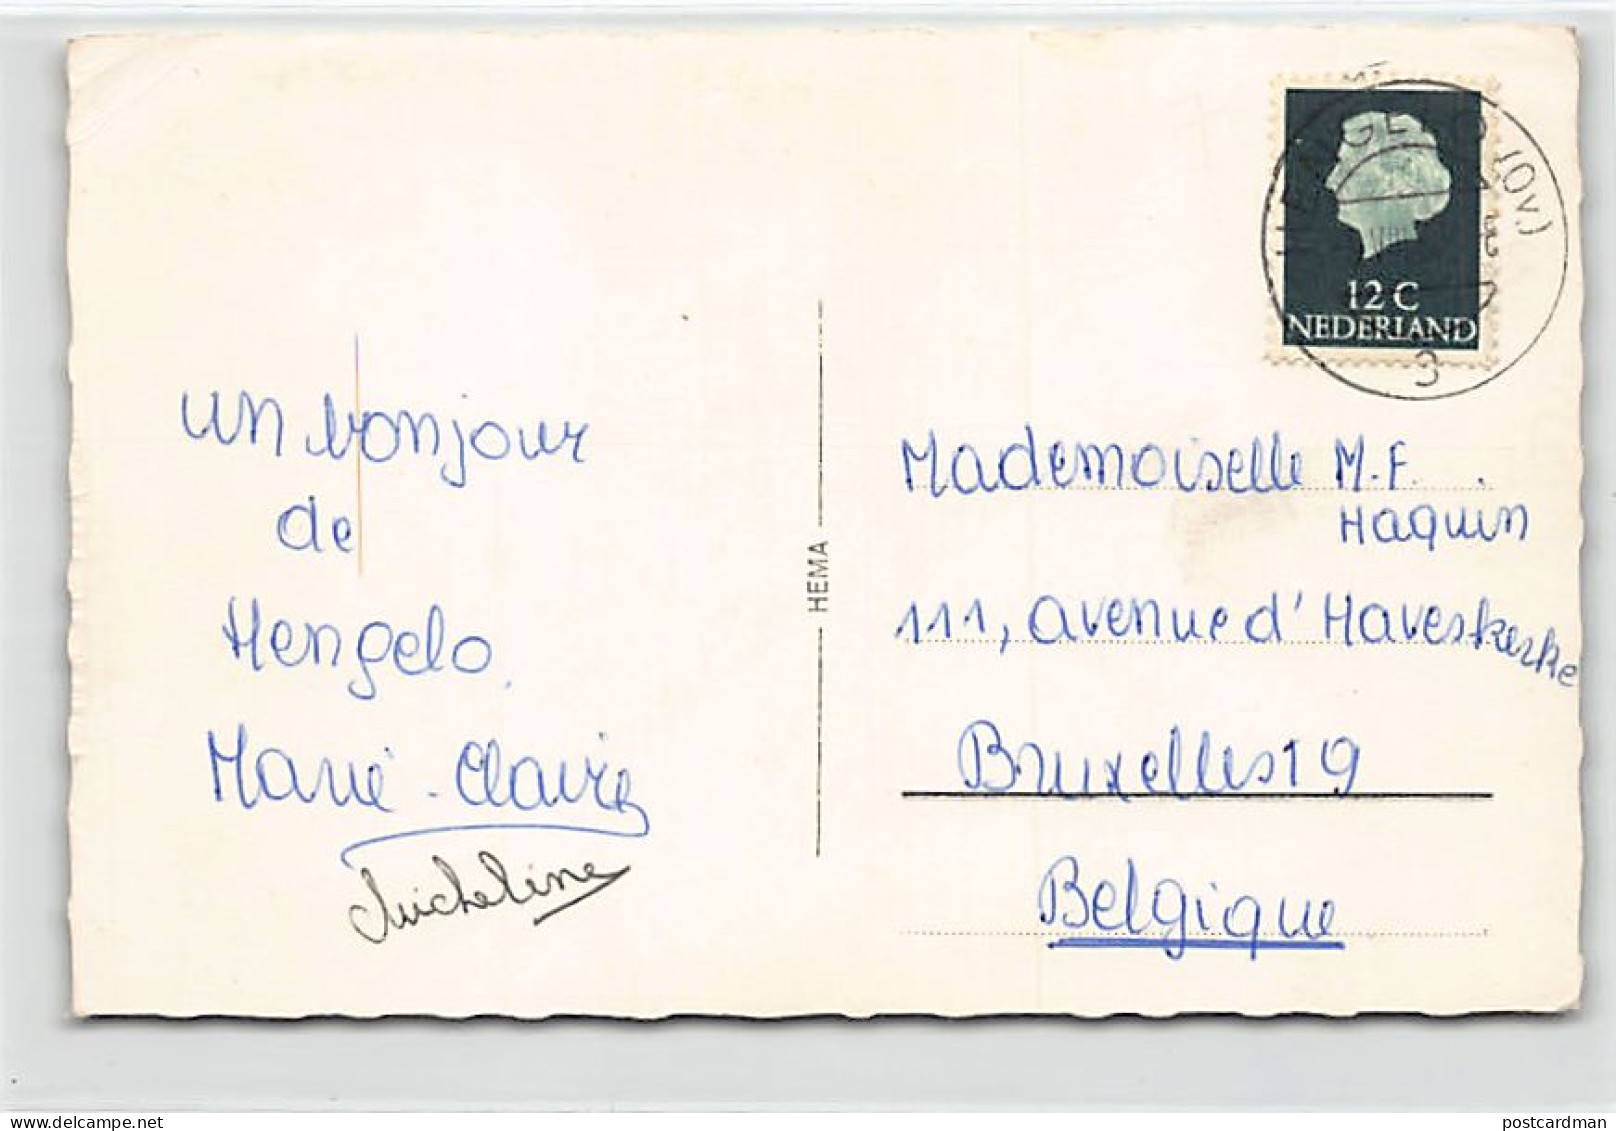 un bonjour
de
Hengelo.
Marie-Claire
Micheline
HEMA
HENGELO (Ov.)
3
12 C
NEDERLAND
Mademoiselle M.F.
Haquin
111, avenue d'Haveskerke
Bruxelles 19
Belgique
delcampe.net
postcardman